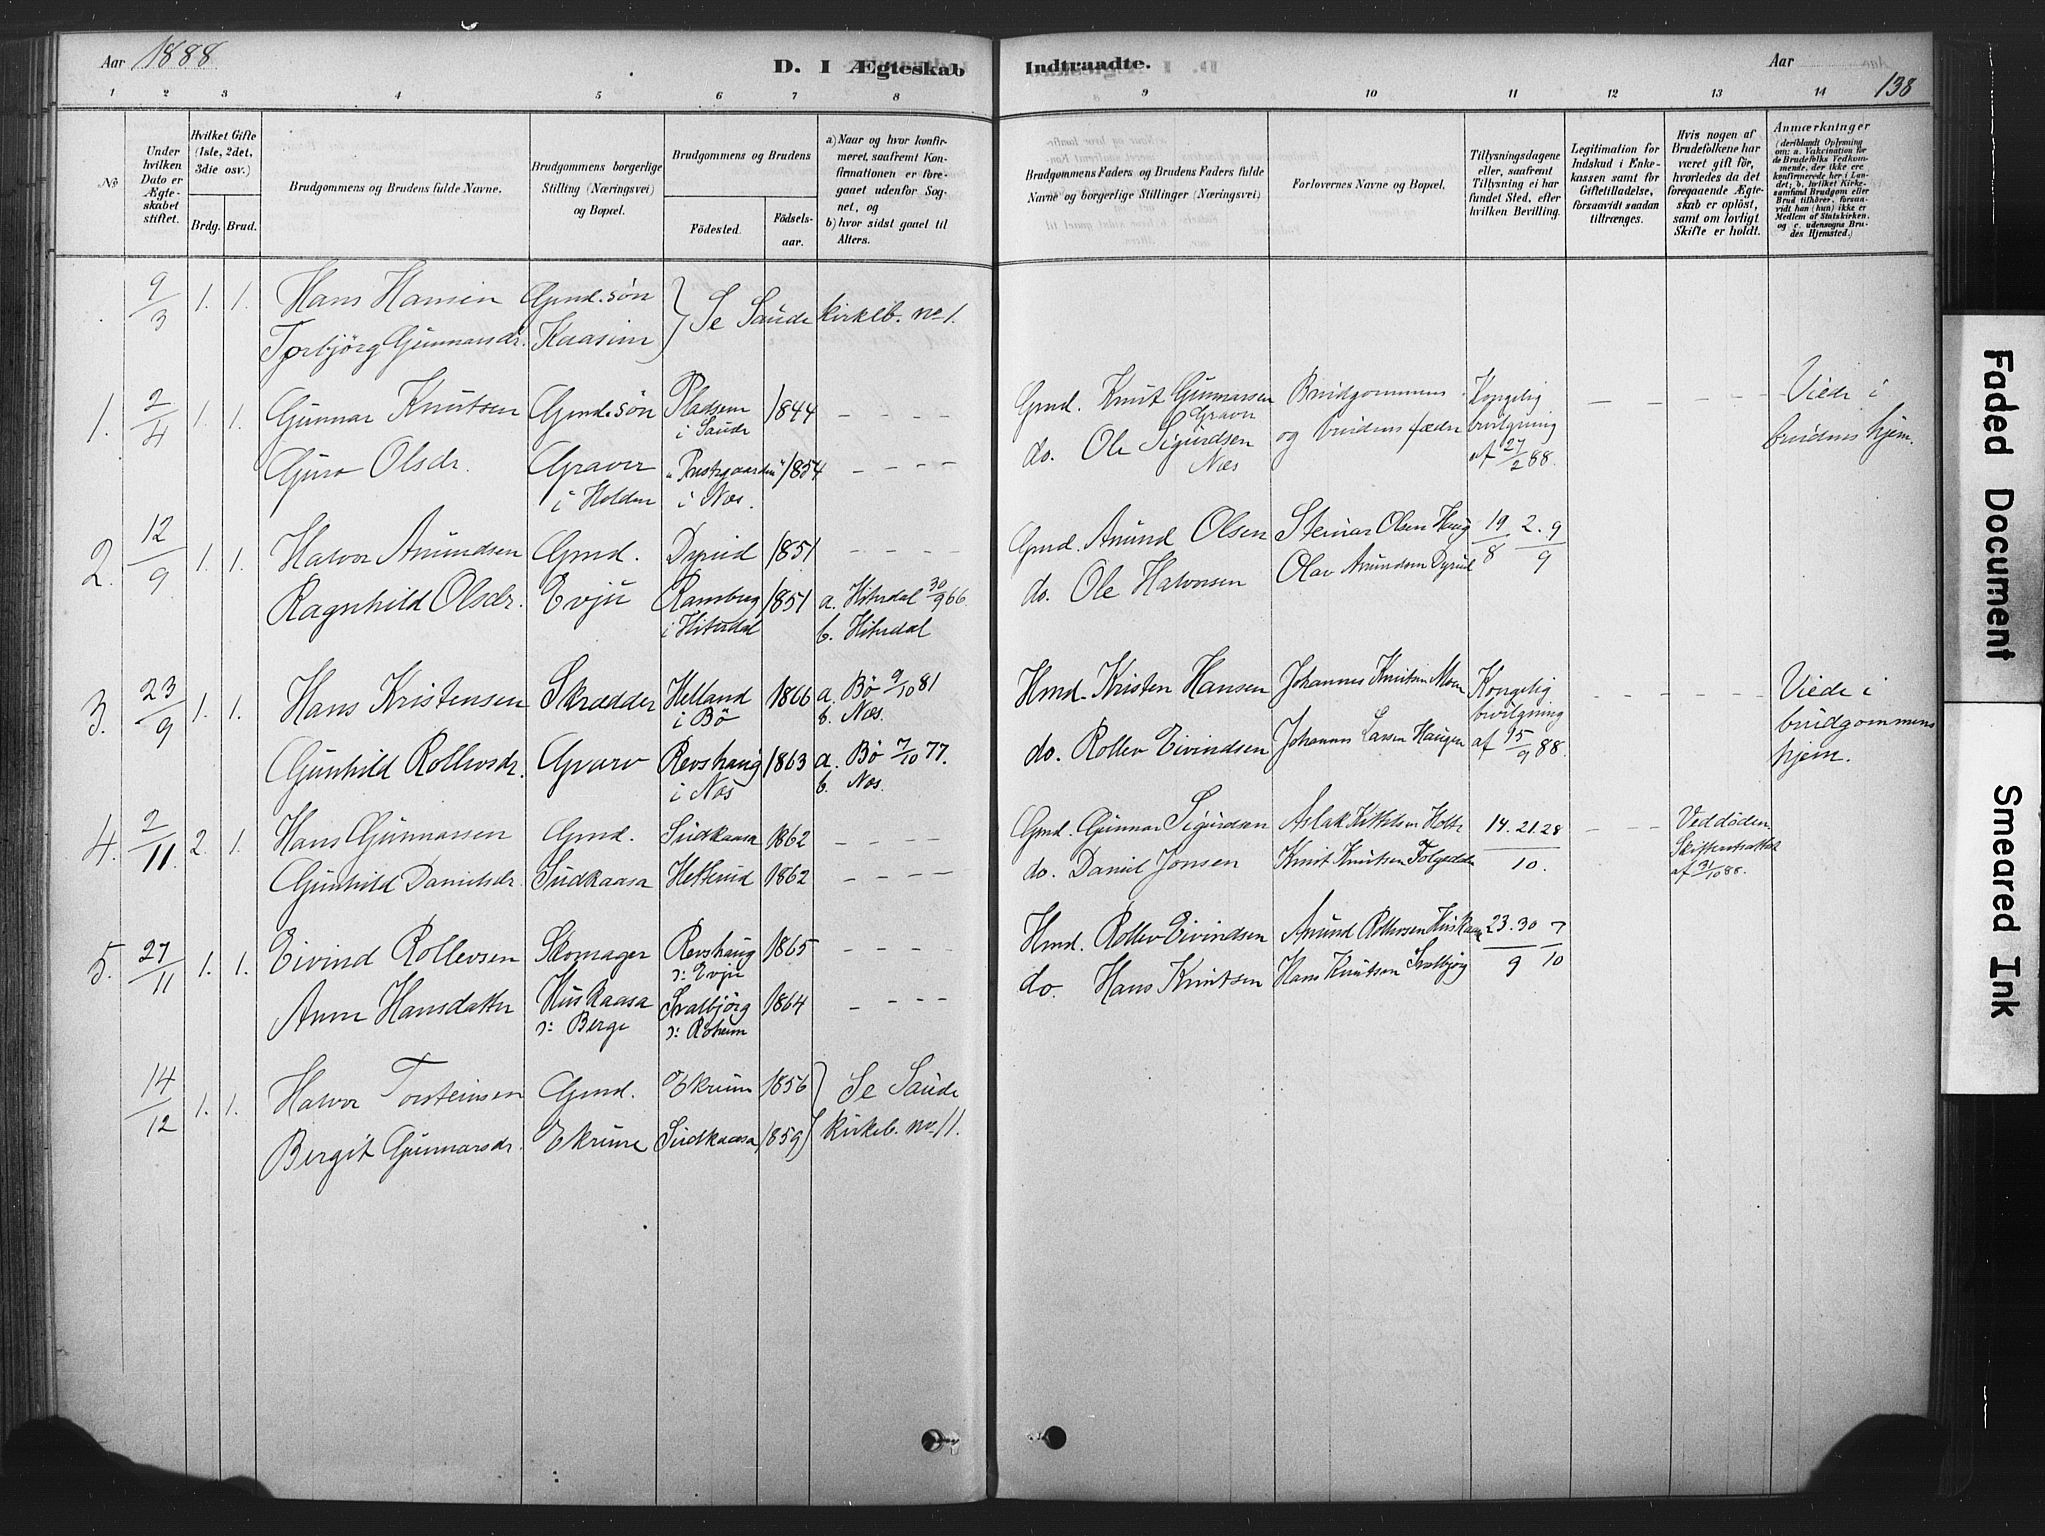 Aar 1888
D. I Ægteskab Indtraadte.
Aar
138
1 2 3 4 5 6 7 8 9 10 11 12 13 14
No
Under hvilken Dato er Ægteskabet stiftet.
Hvilket Gifte (1ste, 2det, 3die osv.)
Brdg. Brud.
Brudgommens og Brudens fulde Navne.
Brudgommens borgerlige Stilling (Næringsvei) og Bopæl.
Brudgommens og Brudens
Fødested.
Fødsels-aar.
a) Naar og hvor konfirmeret, saafremt Konfirmationen er foregaaet udenfor Sognet, og
b) hvor sidst gaael til Alters.
Brudgommens Faders og Brudens Faders fulde Navne og borgerlige Stillinger (Næringsvei)
Forlovernes Navne og Bopæl.
Tillysningsdagene eller, saafremt Tillysning ei har fundet Sted, efter hvilken Bevilling.
Legitimation for Indskud i Enkekassen samt for Giftetilladelse, forsaavidt saadan tiltrænges.
Hvis nogen af Brudefolkene har været gift før, hvorledes da det foregaaende Ægteskab er opløst, samt om lovligt Skifte er holdt.
Anmærkninger
(deriblandt Oplysning om: a. Vakcination for de Brudefolks Vedkommende, der ikke ere konfirmerede her i Landet; b. hvilket Kirkesamfund Brudgom eller Brud tilhører, forsaavidt han (hun) ikke er Medlem af Statskirken, og c. udensogns Brudes Hjemsted.)
9/3 1. 1. Hans Hansen Gmd.søn } Se Saude kirkeb. no 1.
Torbjørg Gunnarsdr. Kaasim
1. 2/4 1. 1. Gunnar Knutsen Gmd.søn Pladsem i Saude 1844 - - - - Gmd. Knut Gunnarsen Gravu Brudgommens Kongelig - - - - - Viede i
Guro Olsdr. Graver i Holden "Prestegaarden" i Nes. 1854 - - - - do. Ole Sigurdsen Næs og brudens fædre bevilgning af 27/2 88. brudens hjem.
2. 12/9 1. 1. Halvor Amundsen Gmd. Dyrud 1851 - - - - Gmd. Amund Olsen Steinar Olsen Haug 19/8 2. 9/9
Ragnhild Olsdr. Evju Ramberg i Hiterdal 1851 a. Hiterdal 30/9 66. b. Hiterdal do. Ole Halvorsen Olav Amundsen Dyrud
3. 23/9 1. 1. Hans Kristensen Skrædder Helland i Bø 1866 a. Bø 9/10 81 b. Næs. Hmd. Kristen Hansen Johannes Knutsen Moen Kongelig bevilgning - - - - - Viede i brudgommens
Gunhild Rollevsdr. Gvarv Revshaug i Næs 1863 a. Bø 7/10 77. b. Næs. do. Rollev Eivindsen Johannes Larsen Haugen af 15/9 88. hjem.
4. 2/11. 2. 1. Hans Gunnarsen Gmd. Sudkaasa 1862 - - - - Gmd. Gunnar Sigurdsen Aslak Kittilsen Holte 14. 21. 28 - - - Ved døden.
Gunhild Danielsdr. Sudkaasa Hetterud 1862 - - - - do. Daniel Jonsen Knut Knutsen 10. Skifteattest af 31/10 88.
5. 27/11 1. 1. Eivind Rollevsen Skomager Revshaug ɔ: Evju 1865 - - - - Hmd. Rollev Eivindsen Amund Rollevsen Huskaasa 23. 30/9 7/10
Anne Hansdatter Huskaasa ɔ: Berge Svalbjørg 1864 - - - - do. Hans Knutsen Hans Knutsen Svalbjørg
14/12 1. 1. Halvor Torsteinsen Gmd. Ekrune 1856 } Se Saude
Bergit Gunnarsdr. Ekrune Sudkaasa 1859 kirkeb. no 11.
Faded Document
Smeared Ink